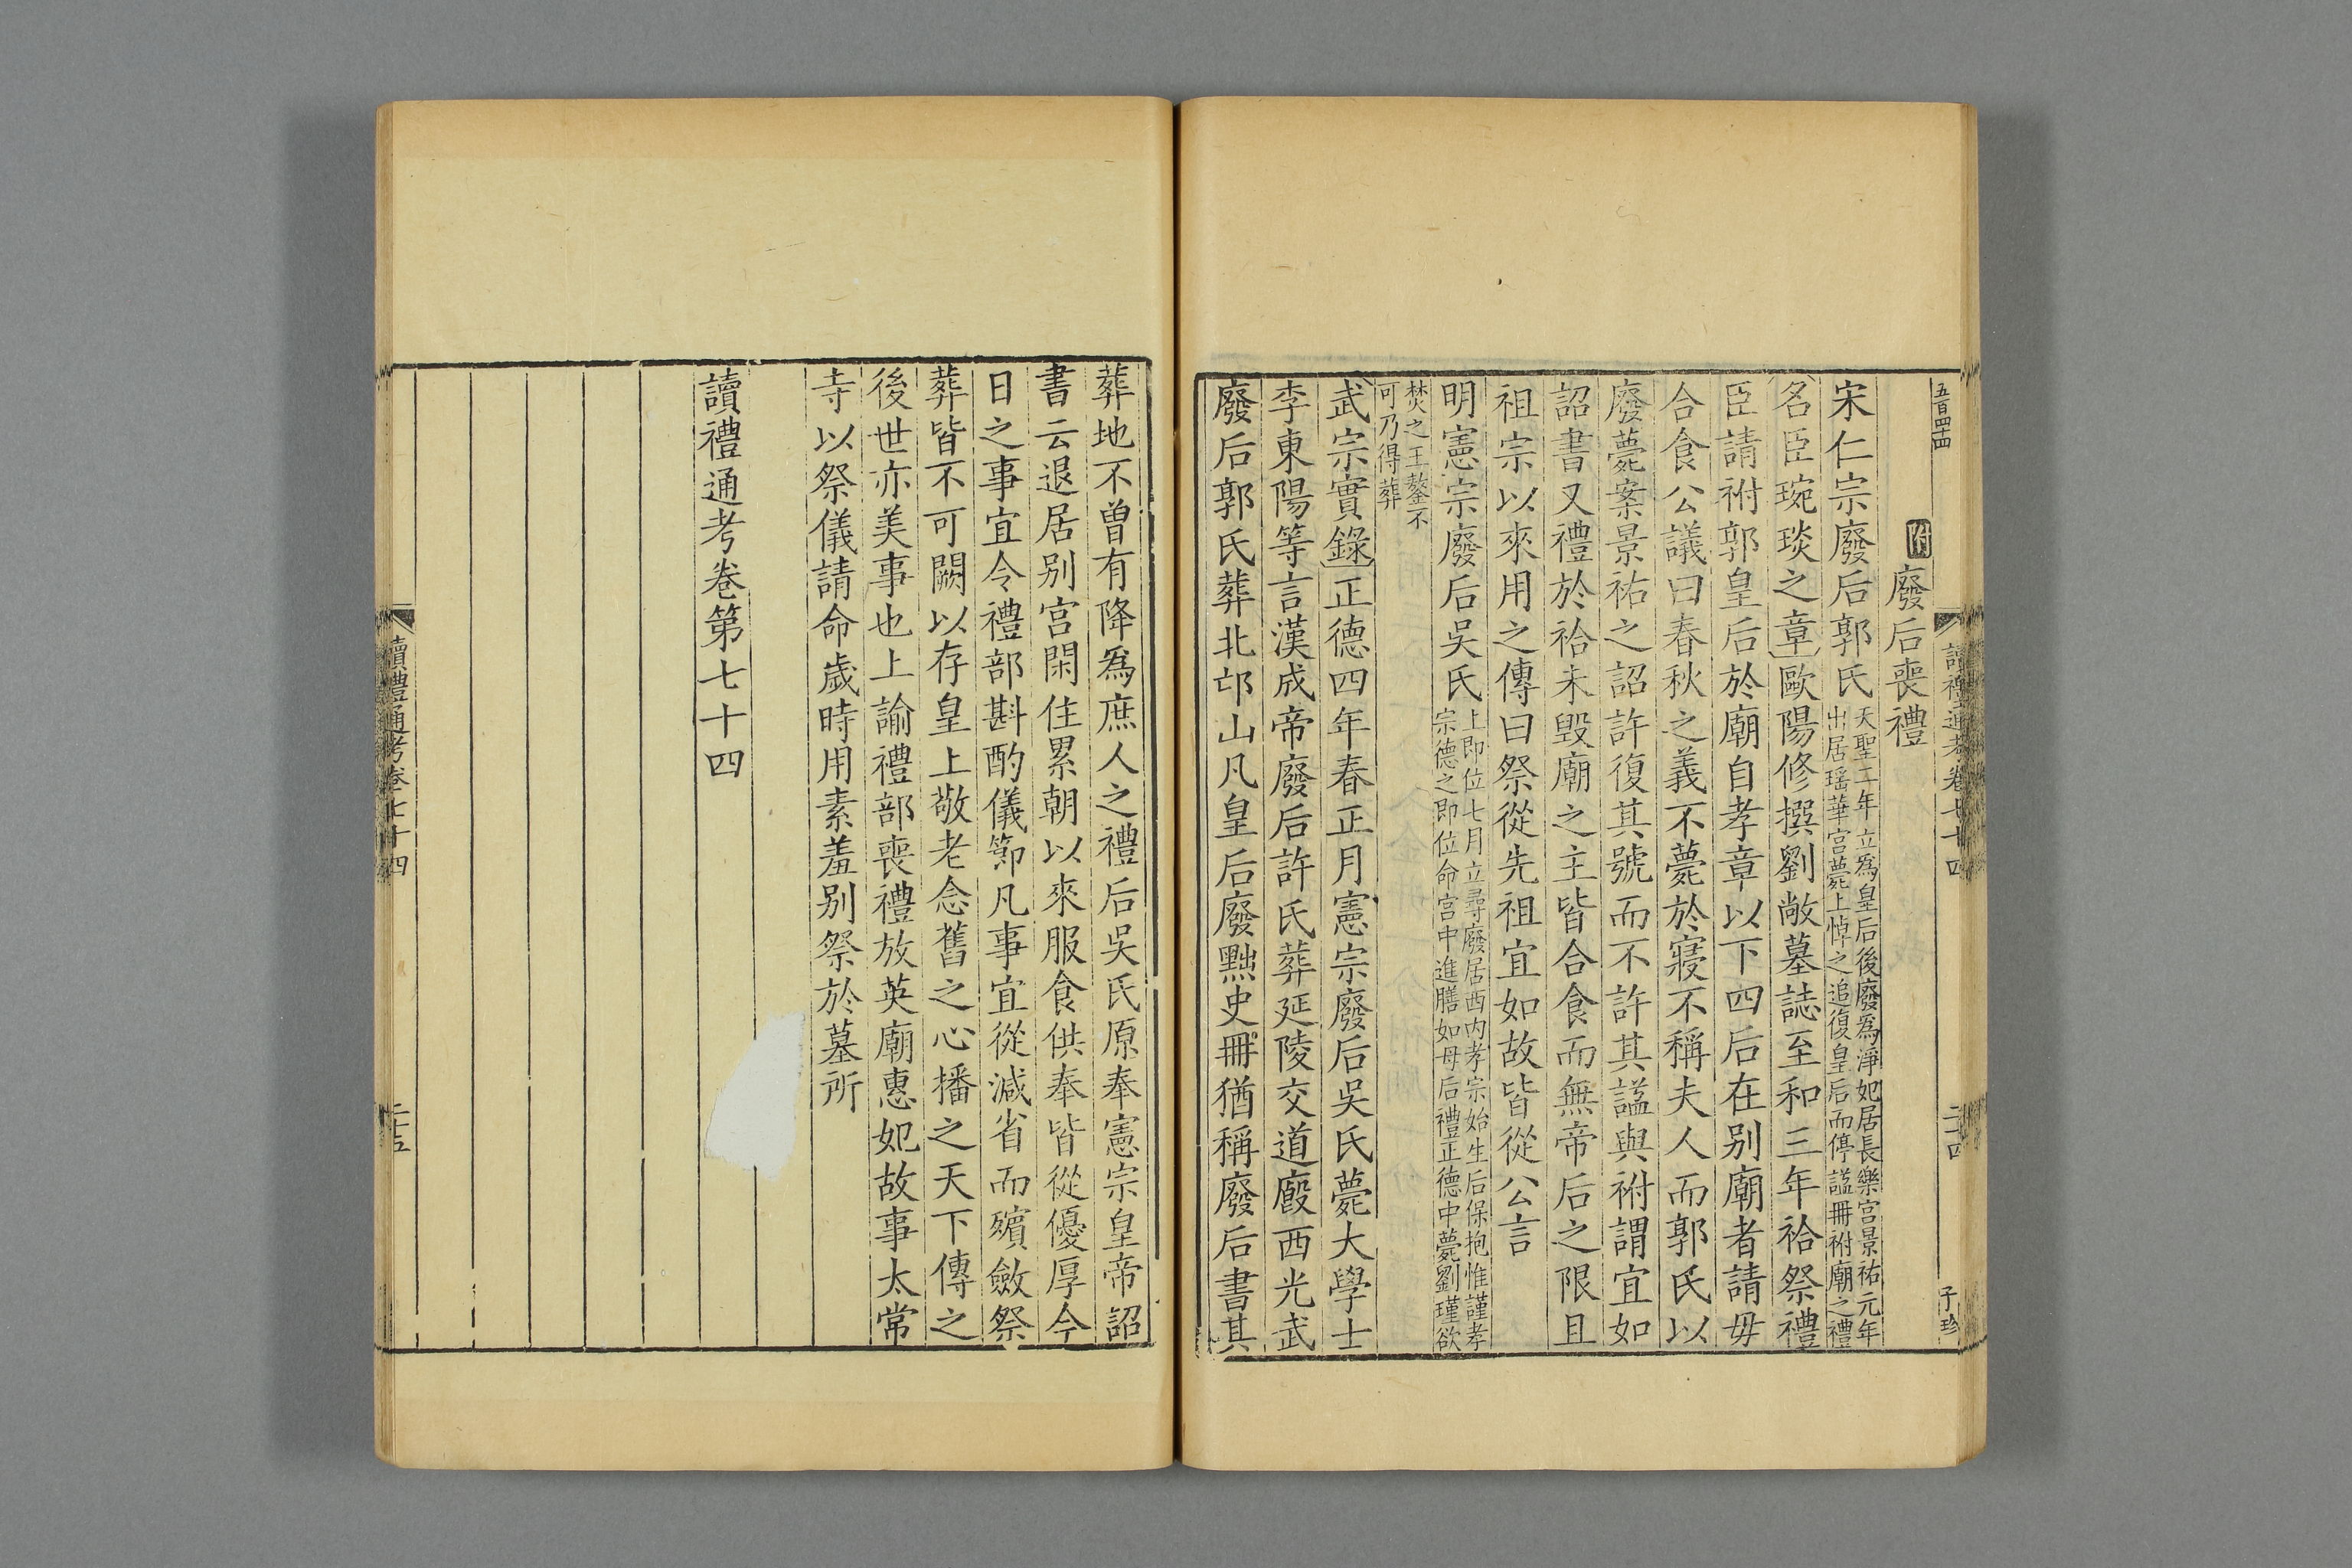 五百四十四
讀禮通考卷七十四
二十四
子珍
附 廢后喪禮
宋仁宗廢后郭氏
天聖二年立爲皇后後廢爲淨妃居長樂宮景祐元年
出居瑶華宮薨上悼之追復皇后而停諡冊祔廟之禮
名臣琬琰之章歐陽修撰劉敞墓誌至和三年祫祭禮
臣請祔郭皇后於廟自孝章以下四后在别廟者請毋
合食公議曰春秋之義不薨於寢不稱夫人而郭氏以
廢薨案景祐之詔許復其號而不許其諡與祔謂宜如
詔書又禮於祫未毀廟之主皆合食而無帝后之限且
祖宗以來用之傳曰祭從先祖宜如故皆從公言
明憲宗廢后吳氏
上即位七月立尋廢居西内孝宗始生后保抱惟謹孝
宗德之即位命宮中進膳如母后禮正德中薨劉瑾欲
焚之王鏊不
可乃得葬
武宗實錄正德四年春正月憲宗廢后吳氏薨大學士
李東陽等言漢成帝廢后許氏葬延陵交道廄西光武
廢后郭氏葬北邙山凡皇后廢黜史冊猶稱廢后書其
葬地不曾有降爲庶人之禮后吳氏原奉憲宗皇帝詔
書云退居别宮閑住累朝以來服食供奉皆從優厚今
日之事宜令禮部斟酌儀節凡事宜從減省而殯斂祭
葬皆不可闕以存皇上敬老念舊之心播之天下傳之
後世亦美事也上諭禮部喪禮放英廟惠妃故事太常
寺以祭儀請命歲時用素羞别祭於墓所
讀禮通考卷第七十四
讀禮通考卷七十四
二十五